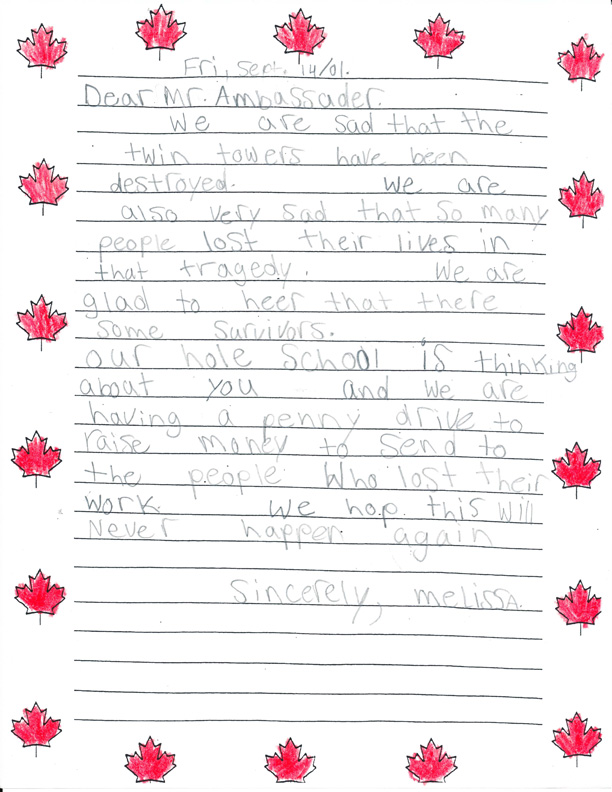 Fri, Sept. 14/01.
Dear Mr. Ambassader.
We are sad that the
twin towers have been
destroyed. We are
also very sad that so many
people lost their lives in
that tragedy. We are
glad to heer that there
some survivors.
our hole School is thinking
about you and we are
having a penny drive to
raise money to send to
the people Who lost their
work. We hop this will
Never happen again
Sincerely, melissa.